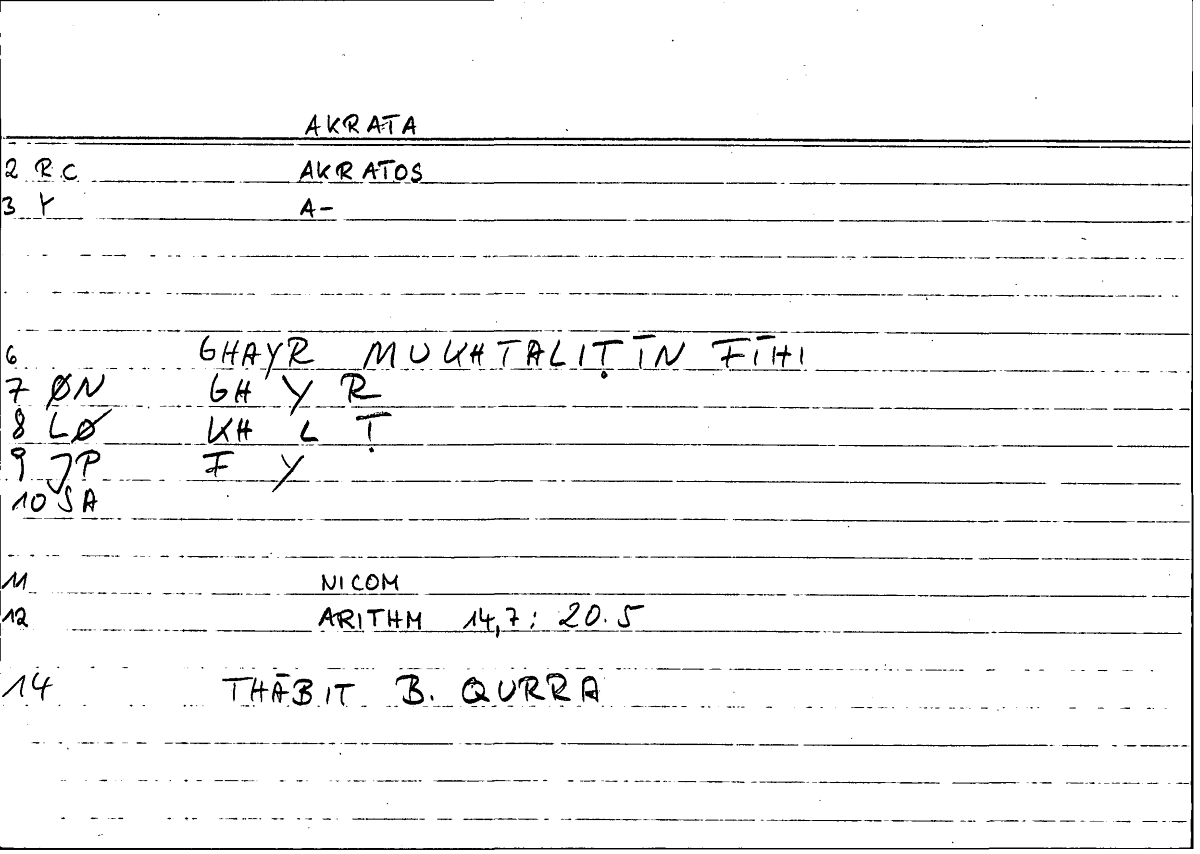 AKRATA
2 RC AKRATOS
3 Y A-
6 GHAYR MUKHTALIṬĪN FĪHI
7 ØN GH Y R
8 LØ KH L Ṭ
9 JP F Y
10 SA
11 NICOM
12 ARITHM 14,7: 20.5
14 THĀBIT B. QURRA